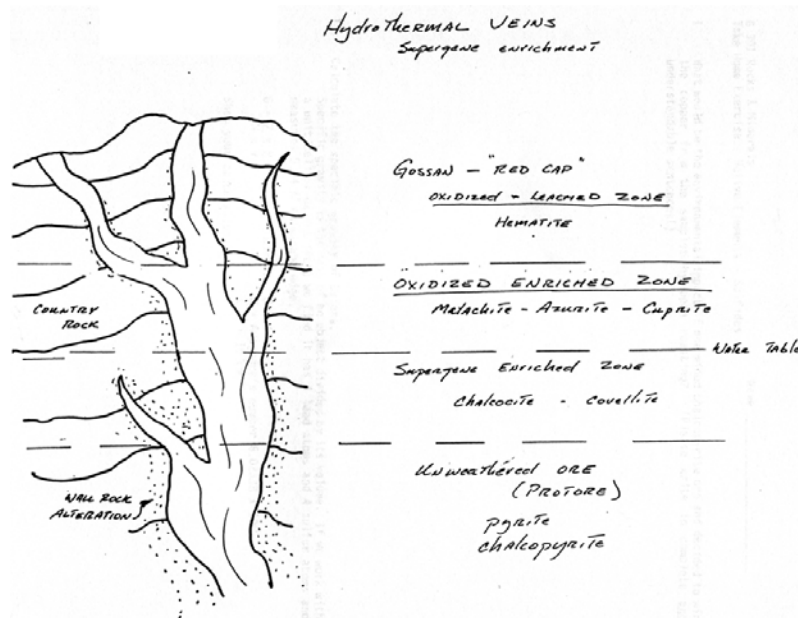 Hydrothermal Veins
Supergene enrichment
Gossan - "Red Cap"
Oxidized - Leached Zone
Hematite
Oxidized Enriched Zone
Malachite - Azurite - Cuprite
Country
Rock
Water Table
Supergene Enriched Zone
Chalcocite - Covellite
Unweathered Ore
(Protore)
Wall Rock
Alteration
pyrite
chalcopyrite